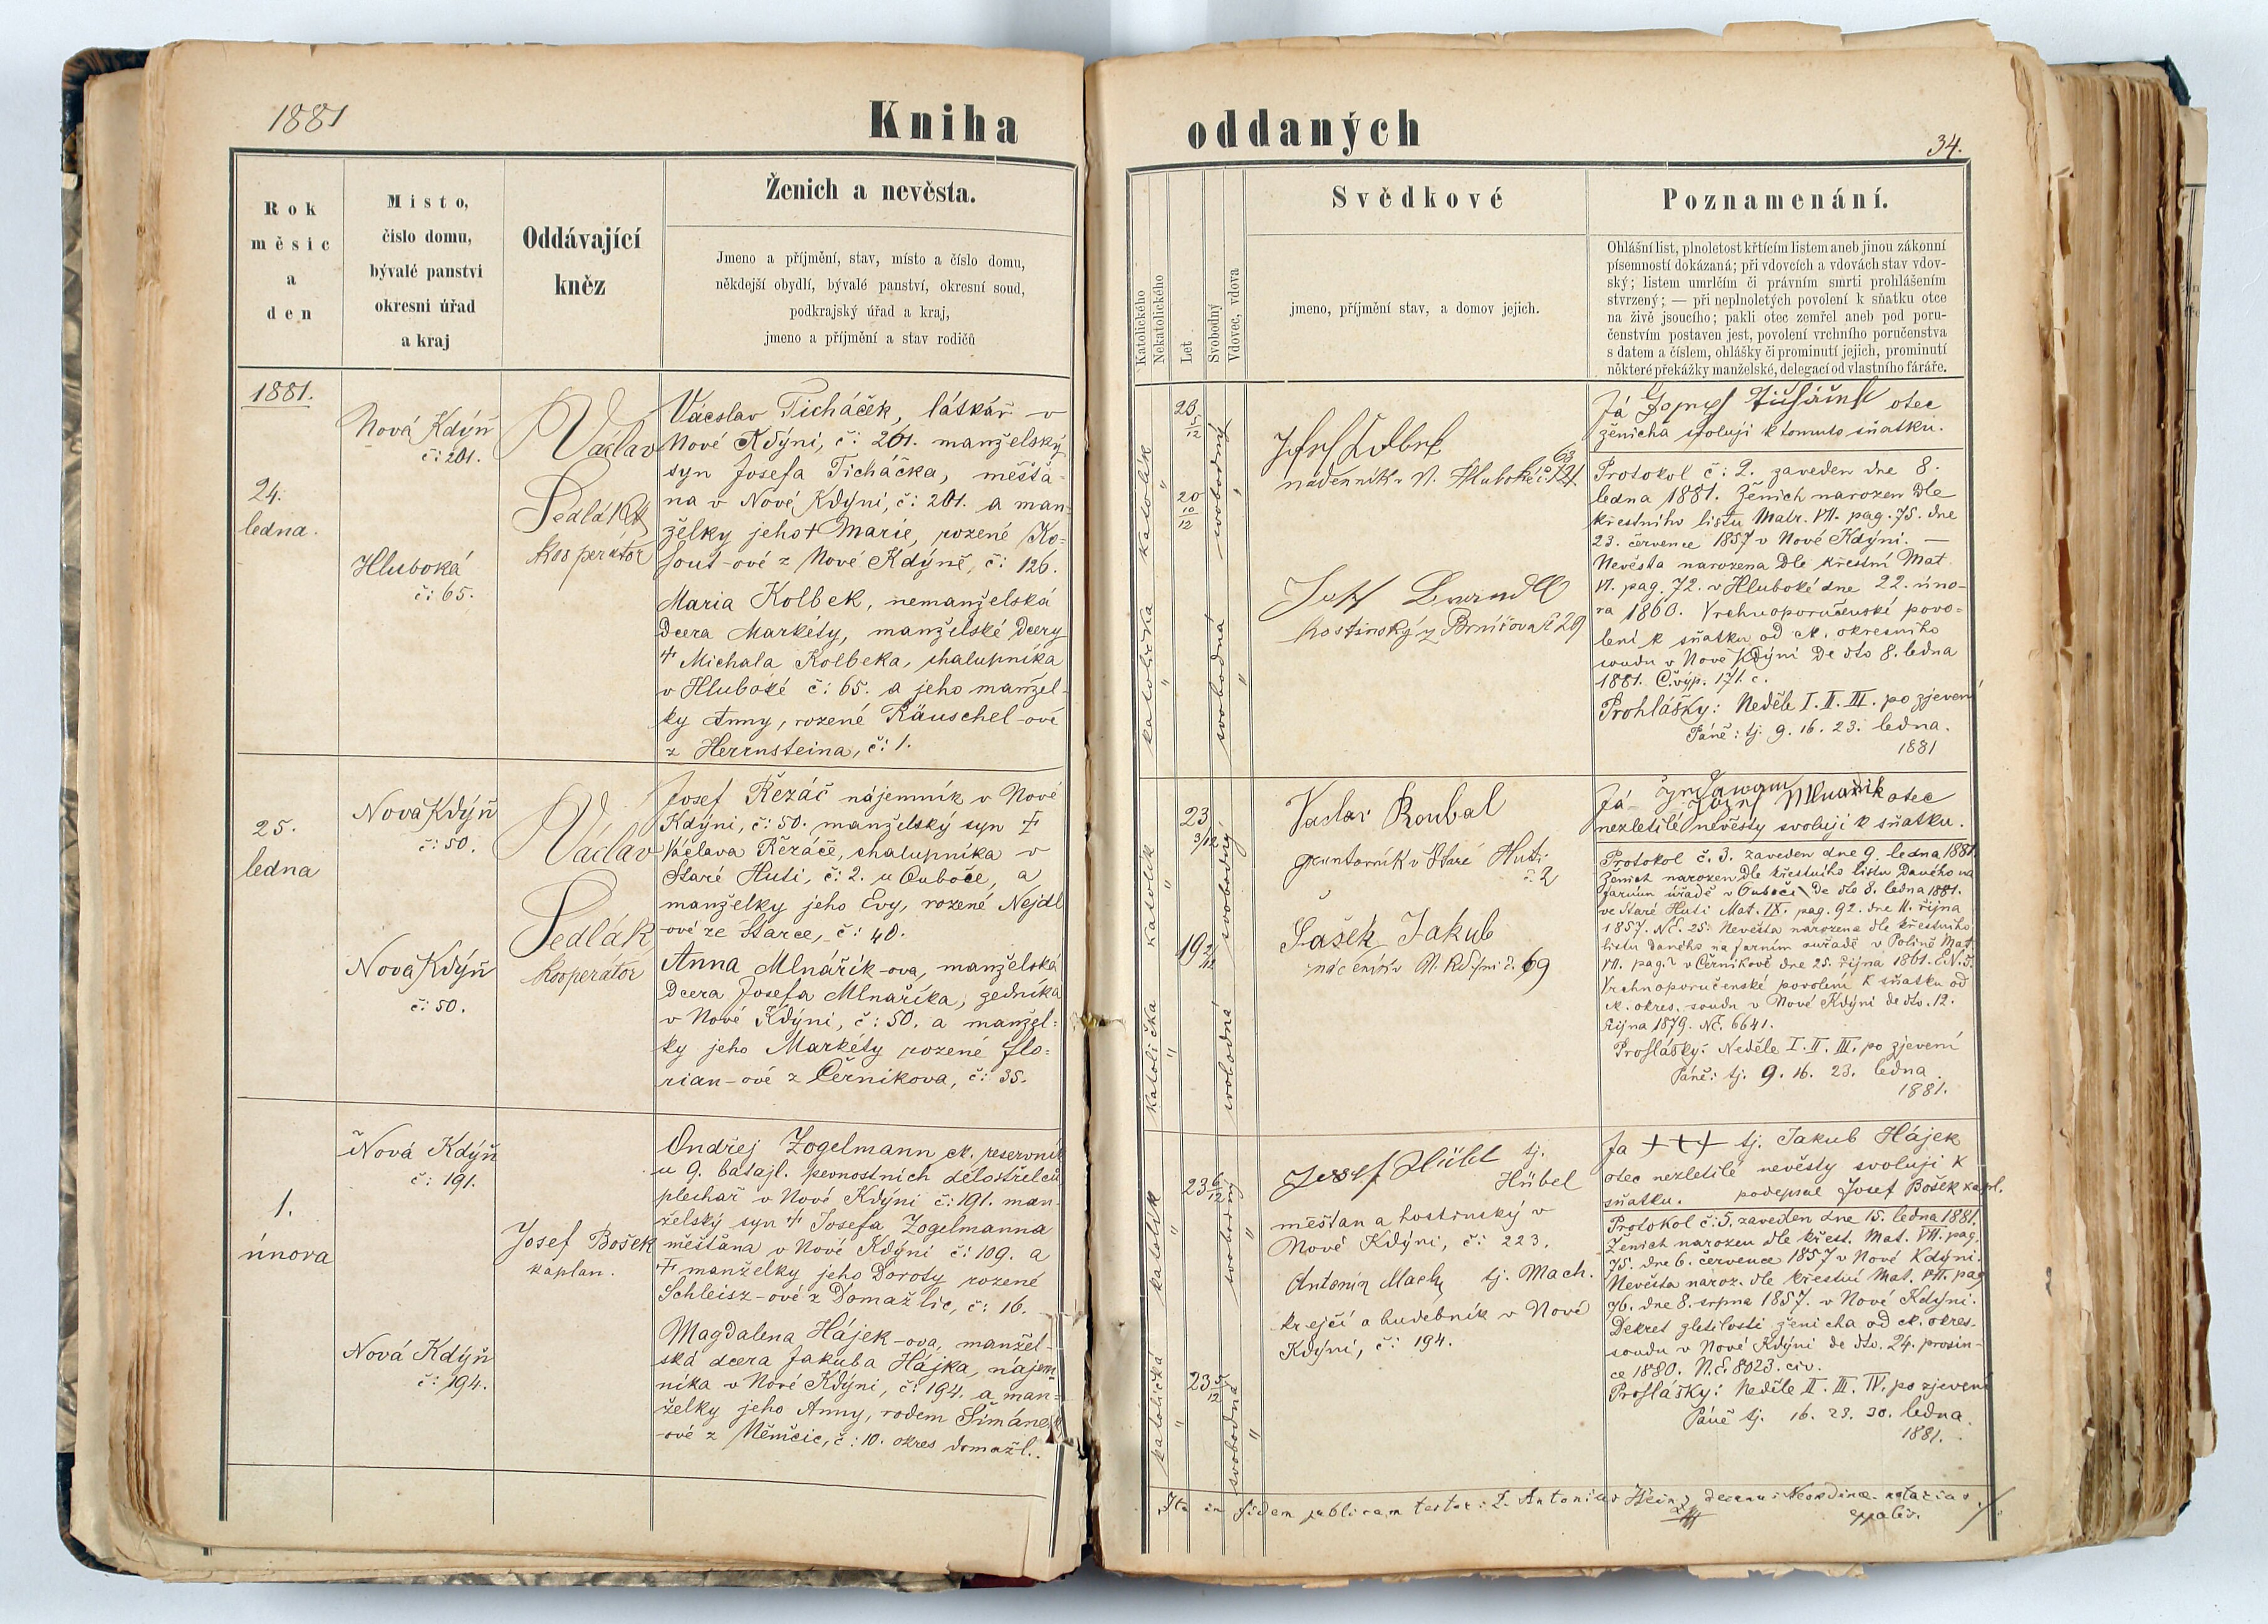 1881
Kniha
oddaných
34.
Rok
měsíc
a
den
Místo,
číslo domu,
bývalé panství
okresní úřad
a kraj
Oddávající
kněz
Ženich a nevěsta.
Jmeno a příjmění, stav, místo a číslo domu,
někdejší obydlí, bývalé panství, okresní soud,
podkrajský úřad a kraj,
jmeno a příjmění a stav rodičů
Katolického
Nekatolického
Let
Svobodný
Vdovec, vdova
Svědkové
jmeno, příjmění stav, a domov jejich.
Poznamenání.
Ohlášní list, plnoletost křtícím listem aneb jinou zákonní
písemností dokázaná; při vdovcích a vdovách stav vdov-
ský; listem umrlčím či právním smrti prohlášením
stvrzený; — při neplnoletých povolení k sňatku otce
na živě jsoucího; pakli otec zemřel aneb pod poru-
čenstvím postaven jest, povolení vrchního poručenstva
s datem a číslem, ohlášky či prominutí jejich, prominutí
některé překážky manželské, delegací od vlastního fáráře.
1881.
24.
ledna.
Nová Kdýň
č: 201.
Hluboká
č: 65.
Václav
Sedlák
kooperátor
Vácslav Ticháček, látkář v
Nové Kdýni, č: 201. manželský
syn Josefa Ticháčka, měšťa-
na v Nové Kdýni, č: 201. a man-
želky jeho + Marie, rozené Ko-
hout-ové z Nové Kdýně, č: 126.
Maria Kolbek, nemanželská
Dcera Markéty, manželské Dcery
+ Michala Kolbeka, chalupníka
v Hluboké č: 65. a jeho manžel-
ky Anny, rozené Räuschel-ové
z Herrnsteina, č: 1.
katolík
"
katolička
"
23 1/12
20 10/12
svobodný
"
svobodná
"
nádenník v N. Hluboké č.
hostinský z Brníčova č 29
Já otec
ženicha svoluji k tomuto sňatku.
Protokol č: 2. zaveden dne 8.
ledna 1881. Ženich narozen Dle
křestního listu Matr. VII. pag. 75. dne
23. července 1857 v Nové Kdýni. —
Nevěsta narozena Dle křestní Mat.
VI. pag. 72. v Hluboké dne 22. úno-
ra 1860. Vrchnoporučenské povo-
lení k sňatku od ck. okresního
soudu v Nové Kdýni De dto 8. ledna
1881. Č. výp. 171. c.
Prohlášky: Neděle I. II. III. po zjevení
Páně: tj. 9. 16. 23. ledna.
1881
25.
ledna
Nová Kdýň
č: 50.
Nová Kdýň
č: 50.
Václav
Sedlák
kooperátor
Josef Řezáč nájemník v Nové
Kdýni, č: 50. manželský syn +
Václava Řezáče, chalupníka v
Staré Huti, č: 2. u Ouboče, a
manželky jeho Evy, rozené Nejdl
-ové ze Starce, č: 40.
Anna Mlnářík-ova, manželská
Dcera Josefa Mlnaříka, zedníka
v Nové Kdýni, č: 50. a manžel-
ky jeho Markéty rozené Flo-
rian-ové z Černíkova, č: 35.
katolík
"
katolička
"
23 3/12
19 2/12
svobodný
svobodná
Vaclav Roubal
gruntovník v Staré Huti
č. 2
Sašek Jakub
v N. Kdýni č. 69
Já Mlnařík otec
nezletilé nevěsty svoluji k sňatku.
Protokol č. 3. zaveden dne 9. ledna 1881.
Ženich narozen Dle křestního listu Daného na
farním úřadě v Ouboči De dto 8. ledna 1881.
ve Staré Huti Mat. IX. pag. 92. dne 11. října
1857. NE. 25. Nevěsta narozena dle křestního
listu daného na farním ouřadě v Polini Mat.
VII. pag. 2 v Černíkově dne 25. října 1861.
Vrchnoporučenské povolení k sňatku od
ck. okres. soudu v Nové Kdýni de dto. 12.
října 1879. NE. 6641.
Prohlášky: Neděle I. II. III. po zjevení
Páně: tj. 9. 16. 23. ledna
1881.
1.
února
Nová Kdýň
č: 191.
Nová Kdýň
č: 194.
Josef Bošek
kaplan.
Ondřej Zogelmann ck. reservník
u 9. batajl. pevnostních dělostřelců
plechař v Nové Kdýni č: 191. man-
želský syn + Josefa Zogelmanna
měšťana v Nové Kdýni č: 109. a
+ manželky jeho Doroty rozené
Schleisz-ové z Domažlic, č: 16.
Magdalena Hájek-ova, manžel-
ská dcera Jakuba Hájka, nájem-
níka v Nové Kdýni, č: 194. a man-
želky jeho Anny, rodem Šimánek
-ové z Němčic, č: 10. okres domažl.
katolík
"
katolička
"
23 6/12
23 5/12
svobodný
"
svobodná
"
Josef Hübl tj.
Hübel
měšťan a hostinský v
Nové Kdýni, č: 223.
Antonín Mach tj. Mach.
krejčí a hudebník v Nové
Kdýni, č: 194.
Ja +++ tj. Jakub Hájek
otec nezletilé nevěsty svoluji k
sňatku. podepsal Josef Bošek kapl.
Protokol č: 5. zaveden dne 15. ledna 1881.
Ženich narozen dle křest. Mat. VII. pag.
75. dne 6. července 1857 v Nové Kdýni.
Nevěsta naroz. dle křestní Mat. VII. pag
76. dne 8. srpna 1857. v Nové Kdýni.
Dekret zletilosti ženicha od ck. okres.
soudu v Nové Kdýni de dto. 24. prosin-
ce 1880. N.E. 8023. civ.
Prohlášky: Neděle II. III. IV. po zjevení
Páně tj. 16. 23. 30. ledna.
1881.
Ita in fidem publicam testor: P. Antonius decanus Neokdinen. notarius
eppalis.